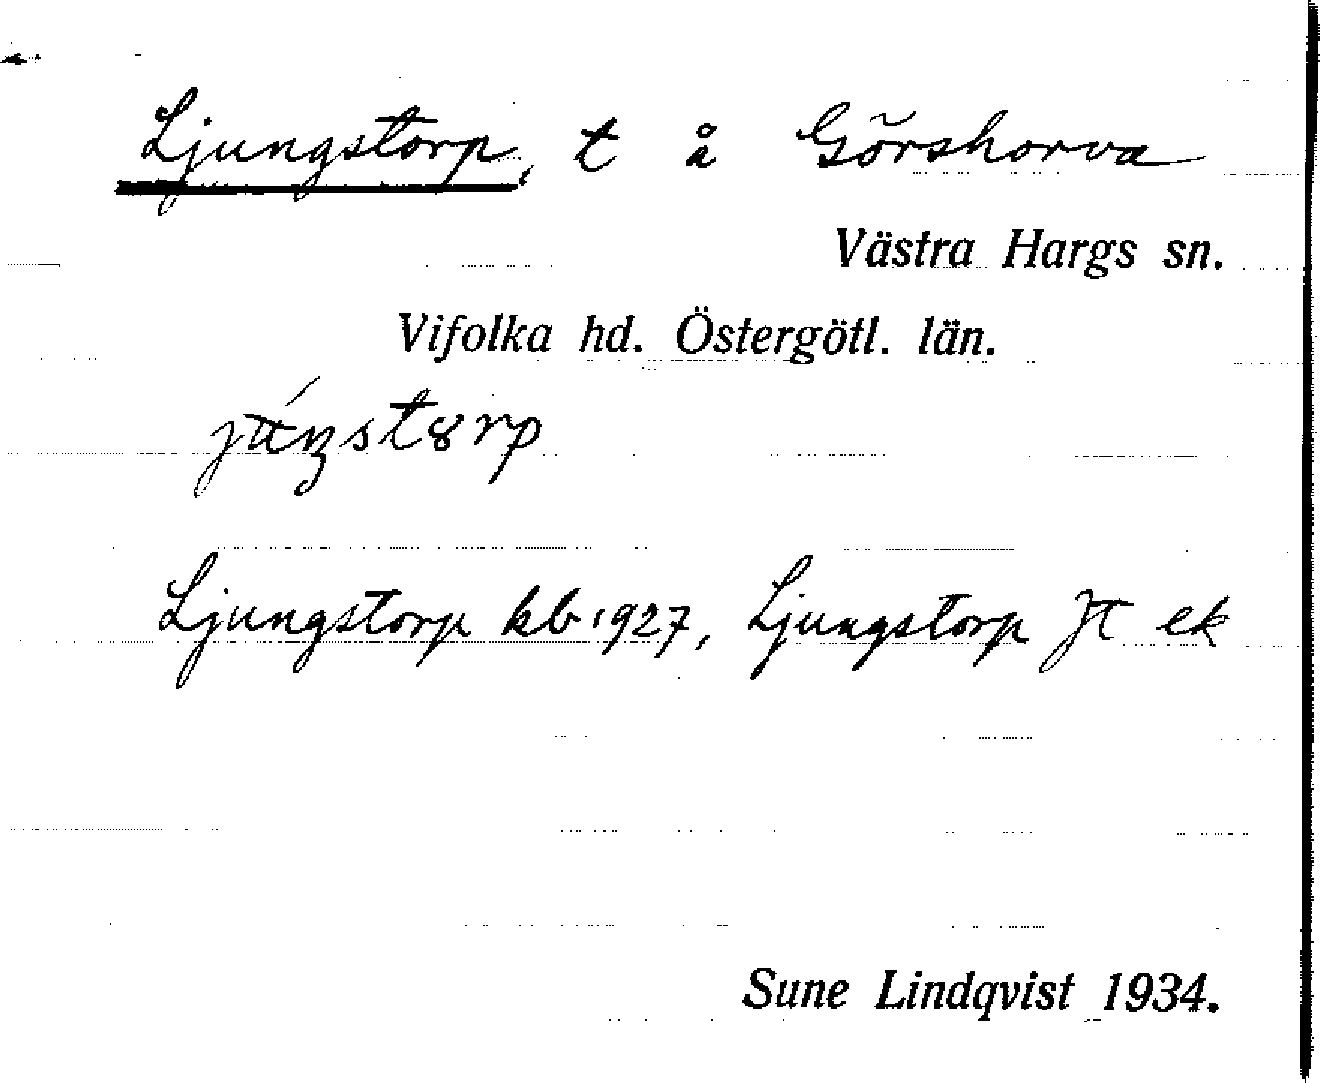 Ljungstorp, t å Görshorva
Västra Hargs sn.
Vifolka hd. Östergötl. län.
Ljungstorp kb 1927, Ljungstorp Jt ek
Sune Lindqvist 1934.